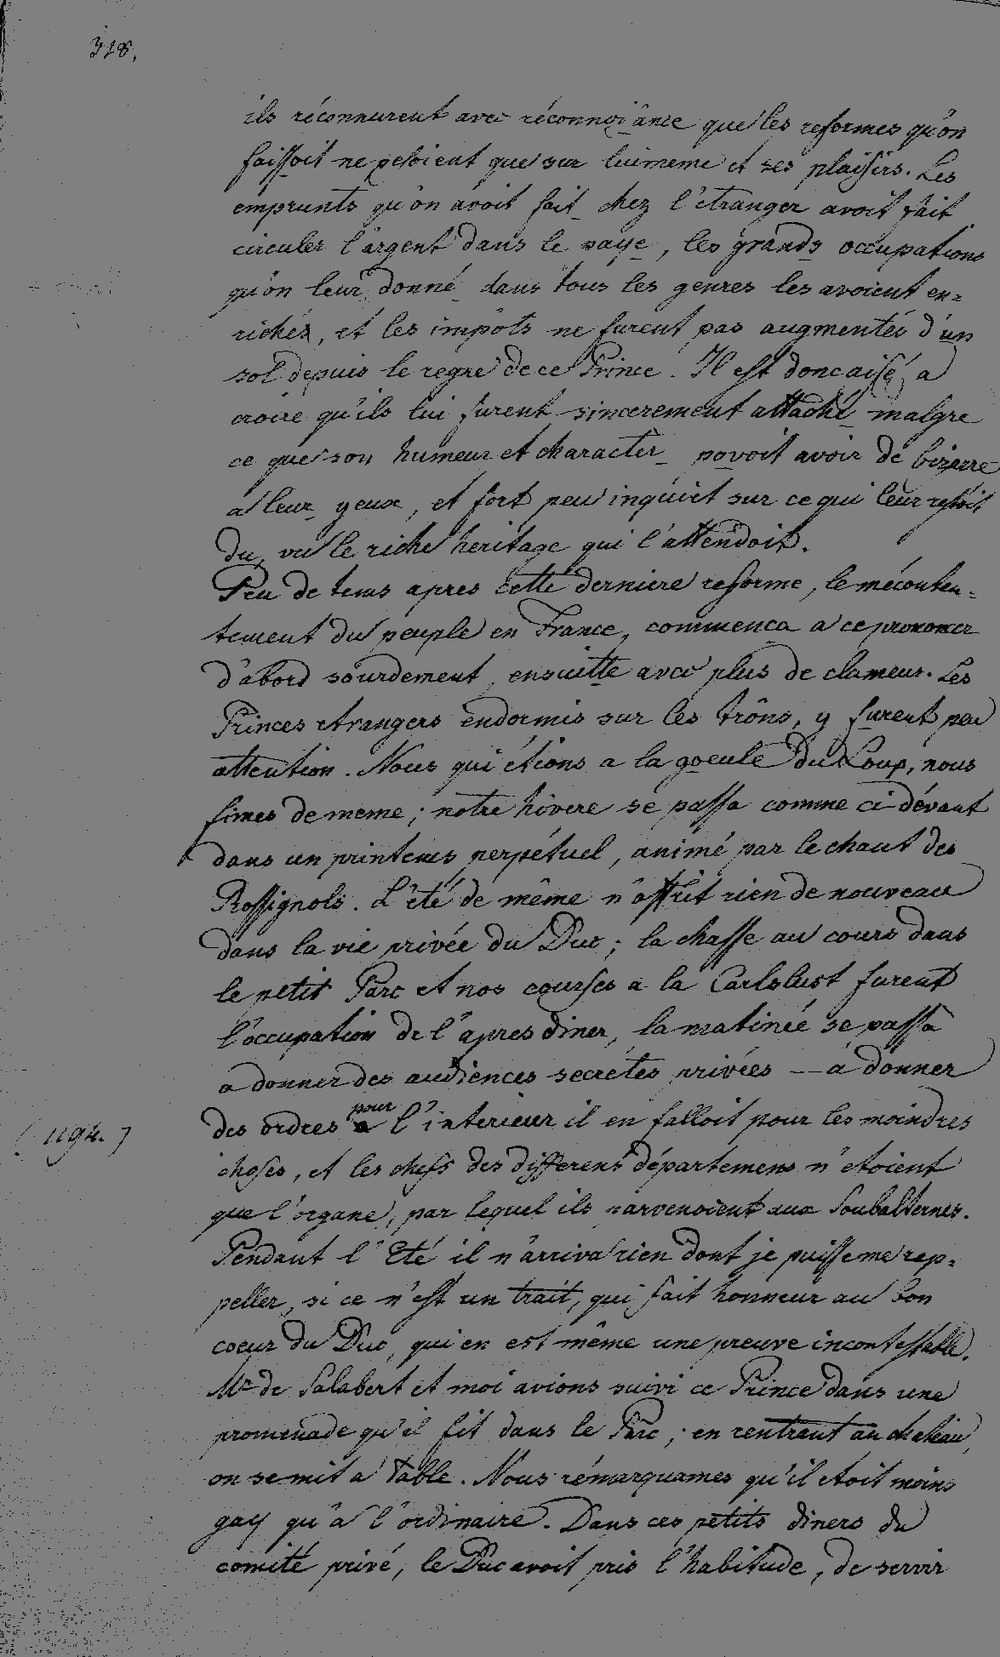 318.
ils réconnurent avec réconnoiânce que les reformes qu'on
faissoit ne pesoient que sur luimeme et ses plaisirs. Les
emprunts qu'on avoit fait chez l'etranger avoit fait
circuler l'argent dans le paye, les grands occupations
qu'on leur donné dans tous les genres les avoient en=
riches, et les impôts ne furent pas augmentés d'un
sol depuis le regne de ce Prince. Il est donc aisé a
croire qu'ils lui furent sincerement attaché malgre
ce que son humeur et charactêr povoit avoir de bizarre
a leur yeux, et fort peu inquiet sur ce qui leur restoit
du, vu le riche heritage qui l'attendoit.
Peu de tems apres cette derniere reforme, le méconten=
tement du peuple en France, commenca a ce prononcer
d'abord sourdement, ensuitte avec plus de clameur. Les
Princes etrangers endormis sur les trôns, y furent peu
attention. Nous qui étions a la goeule du Loup, nous
fimes de meme; notre hivere se passa comme ci dévant
dans un printems perpétuel, animé par le chant des
Rossignols. L'été de même n'offrit rien de nouveau
dans la vie privée du Duc; la chasse au cours dans
le petit Parc et nos courses a la Carlslust furent
l'occupation de l'apres diner, la matinée se passa
a donner des audiences secrétes privées — à donner
des ordres pour l'interieur il en falloit pour les moindres
(1194.)
choses, et les chefs des differens départemens n'etoient
que l'organe, par lequel ils parvenoient aux Soubalternes.
Pendant l'Eté il n'arriva rien dont je puisse me rap=
peller, si ce n'est un trait, qui fait honneur au bon
coeur du Duc, qui en est même une preuve incontestable.
Mr de Salabert et moi avions suivi ce Prince dans une
promenade qu'il fit dans le Parc; en rentrant au chateau,
on se mit a table. Nous rémarquames qu'il etoit moins
gay qu'à l'ordinaire. Dans ces petits diners du
comité privé, le Duc avoit pris l'habitude, de servir